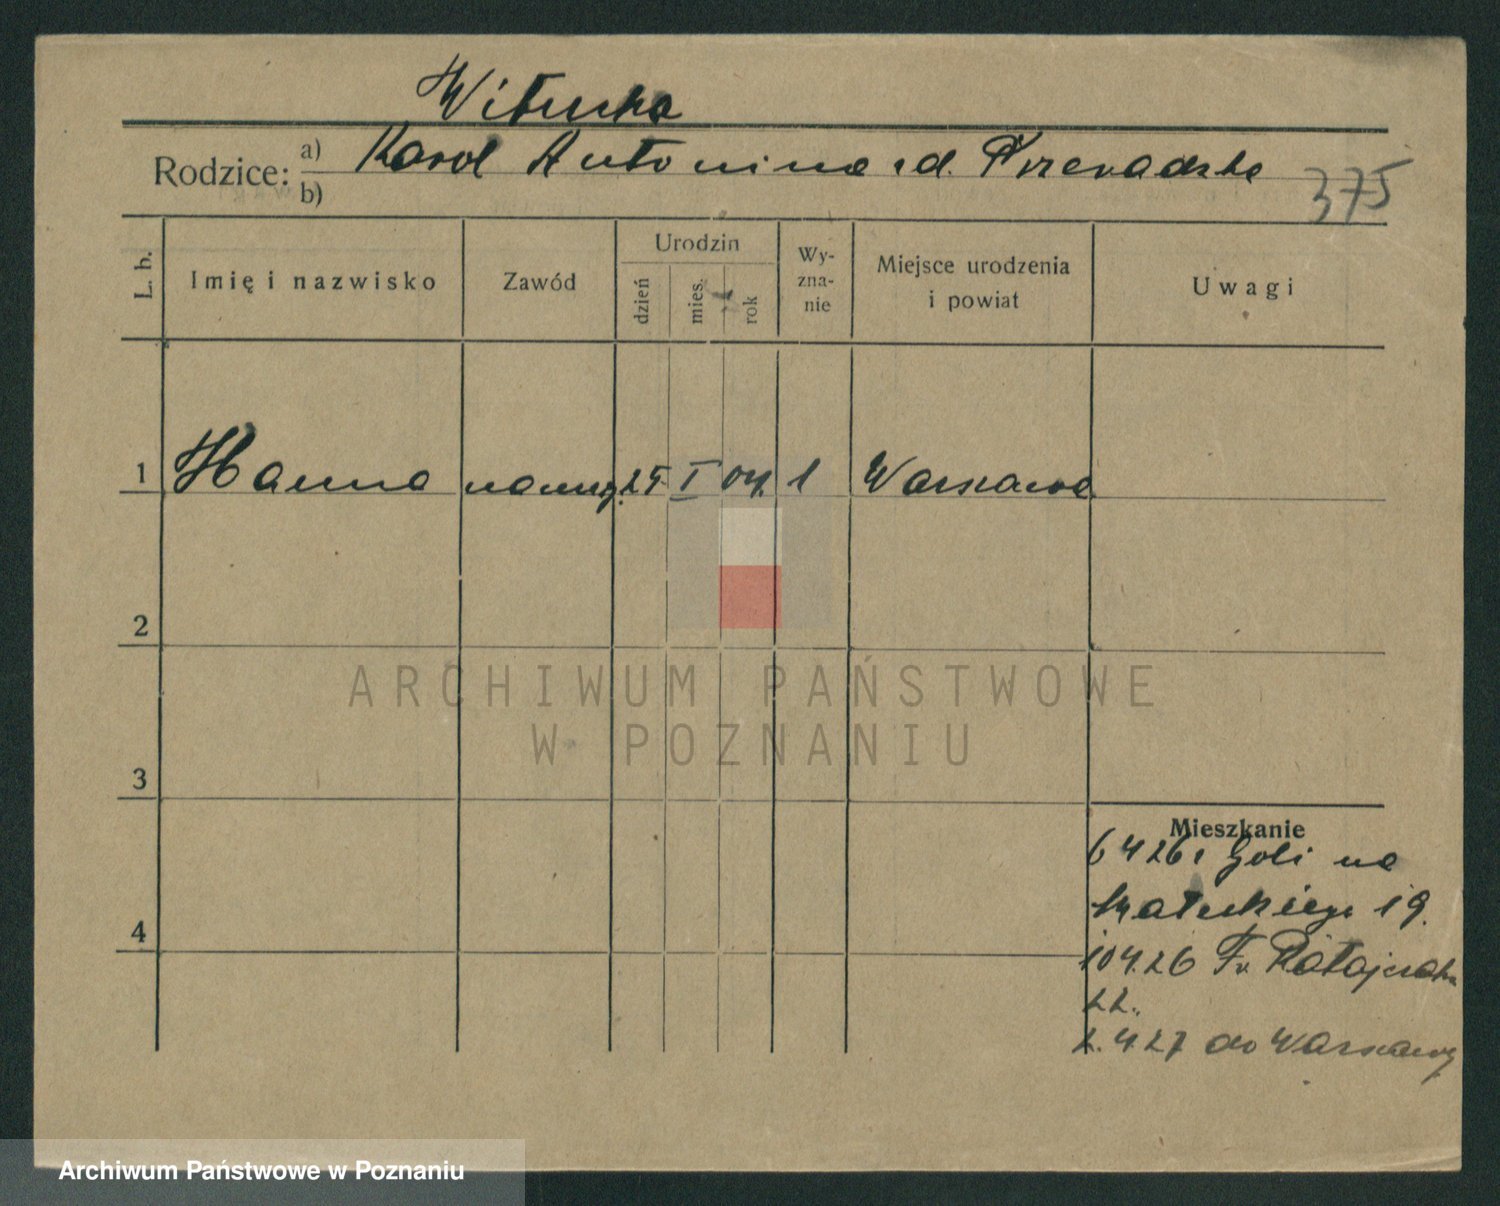 Wituska
Rodzice: a) Karol Antonina z d.
b)
375
L. b.
Imię i nazwisko
Zawód
Urodzin
dzień
mies.
rok
Wy-
zna-
nie
Miejsce urodzenia
i powiat
Uwagi
1 Hanna naucz. 25 I 04. 1 Warszawa
2
3
4
Mieszkanie
6 4 26 z Goli na
19.
10 4. 26 Fr. Ratajczaka
22.
2. 4. 27 do Warszawy
ARCHIWUM PAŃSTWOWE
W POZNANIU
Archiwum Państwowe w Poznaniu